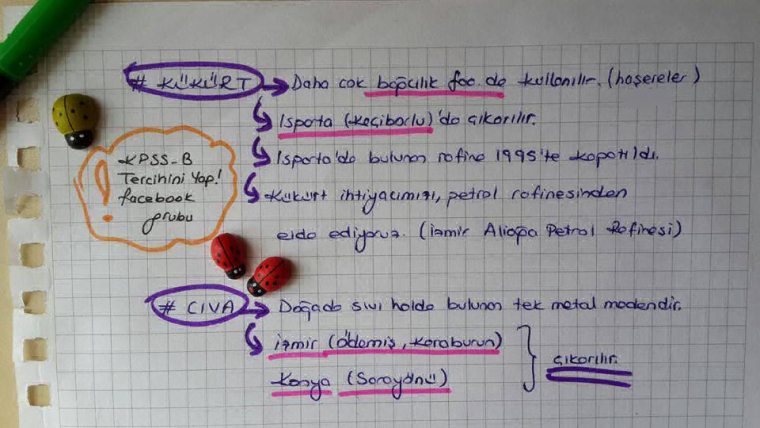 # KÜKÜRT → Daha çok bağcılık faa. de kullanılır. (haşereler)
Isparta (Keçiborlu)'da çıkarılır.
Isparta'da bulunan rafine 1995'te kapatıldı.
Kükürt ihtiyacımızı, petrol rafinesinden
elde ediyoruz. (İzmir Aliağa Petrol Rafinesi)
! KPSS-B
Tercihini Yap!
facebook
grubu
# CIVA → Doğada sıvı halde bulunan tek metal madendir.
İzmir (Ödemiş, Karaburun)
Konya (Sarayönü)
çıkarılır.